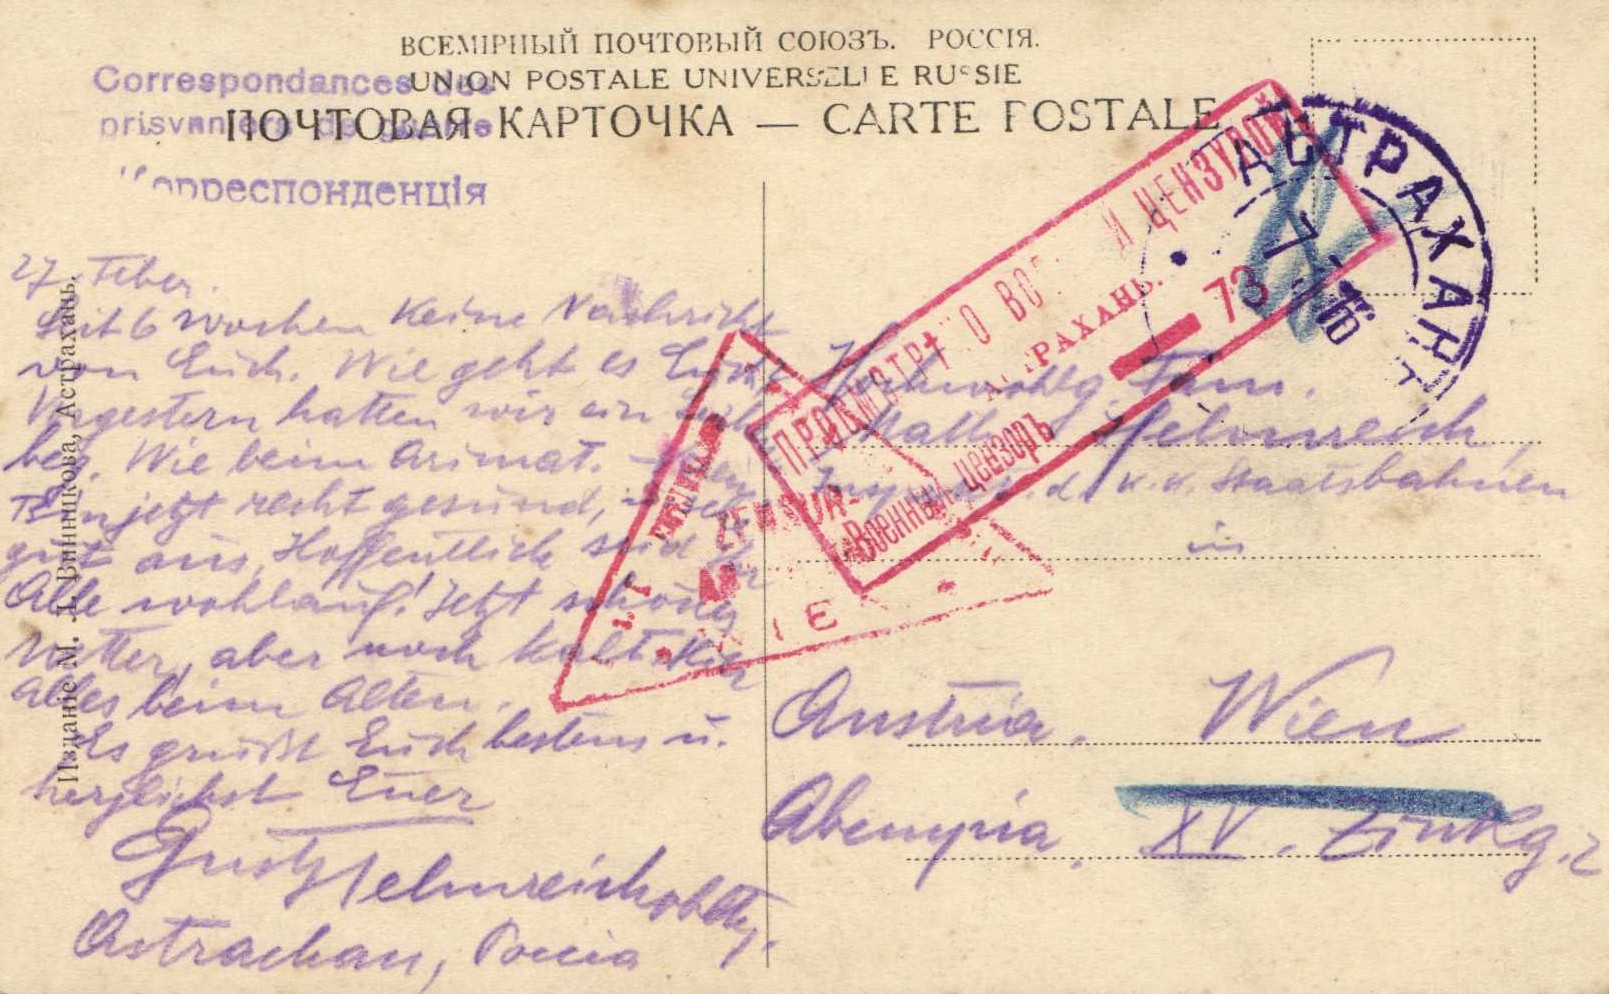 ВСЕМІРНЫЙ ПОЧТОВЫЙ СОЮЗЪ. РОССІЯ.
UNION POSTALE UNIVERSELLE RUSSIE
ПОЧТОВАЯ КАРТОЧКА — CARTE POSTALE
Correspondances des
prisonniers de guerre
Корреспонденція
27. Feber.
Seit 6 wochen keine Nachricht
von Euch. Wie geht es Euch?
Vorgestern hatten wir ein
beg. Wie beim
Bin jetzt recht gesund,
gut aus, Hoffentlich seid Ihr
Alle wohlauf! Jetzt schönes
Wetter, aber noch kalt. Hier
alles beim Alten.
Es grüßt Euch bestens u.
herzlichst Euer
Gust Helmreich
Astrachan, Россіа
Изданіе М. Д. Винникова, Астрахань.
ПРОСМОТРѢНО ВОЕН ЦЕНЗУРОЙ
АСТРАХАНЬ.
Военный цензоръ
73
АСТРАХАНЬ
7 16
ZENSUR
WIEN
Hochwohlg. Fam.
Math. Helmreich,
d. k. k. Staatsbahnen
in
Austria. Wien
Австрія. XV. Zinkg. 2